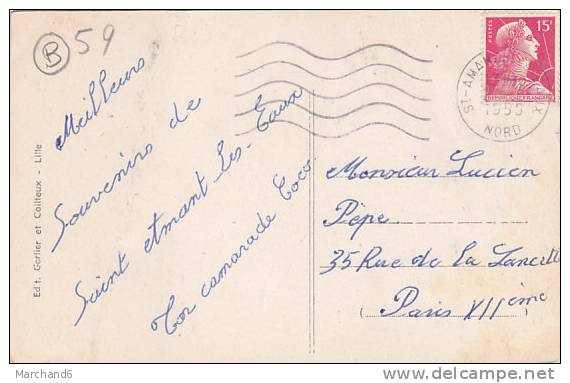 B 59
15F
POSTES
REPUBLIQUE FRANÇAISE
ST-AMAN
1955
NORD
Meilleurs
Souvenirs de
Saint Amant les-Eaux
Ton camarade Coco
Monsieur Lucien
Pèpe
35 Rue de la
Paris XIIème
Edit. Gorlier et Cailteux - Lille
Marchand6
delcampe.net